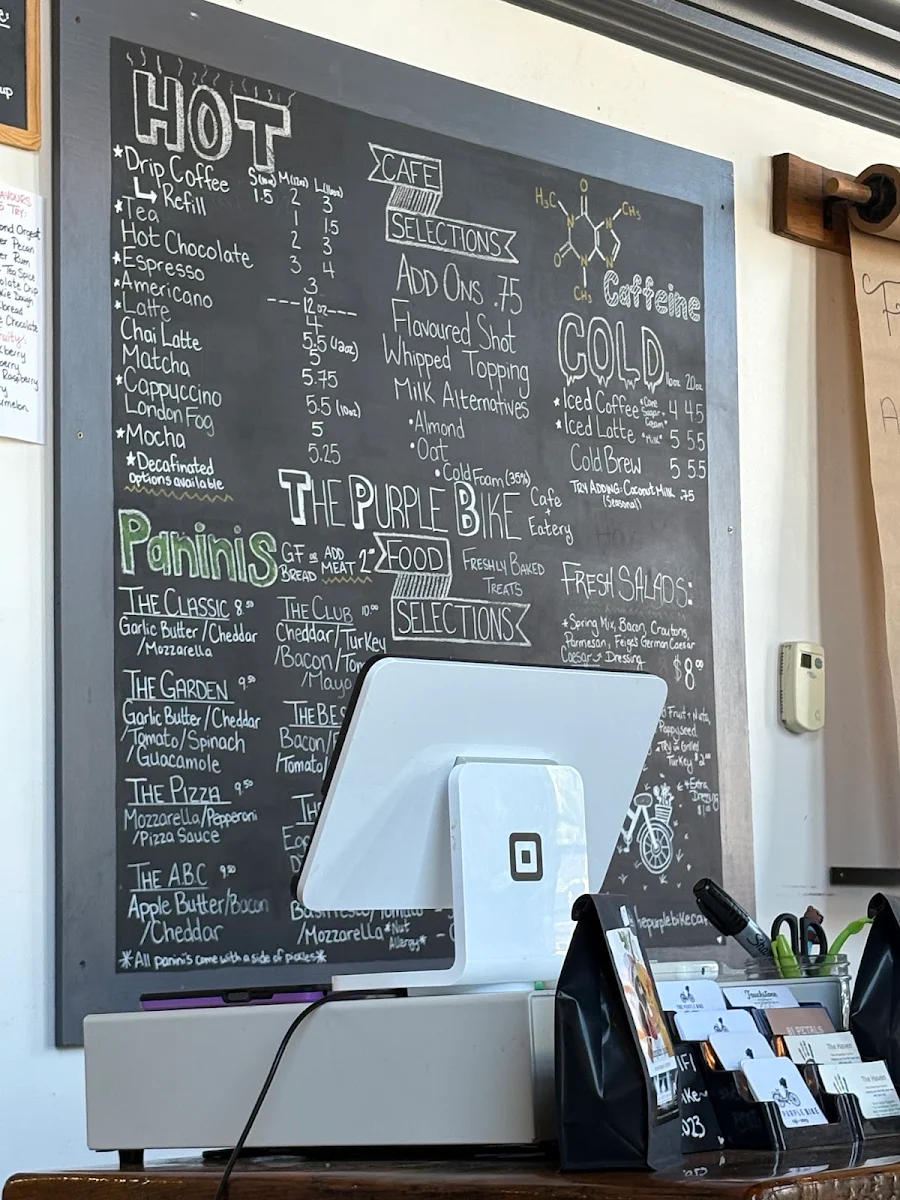 HOT
S M L
*Drip Coffee 1.5 2 3
Refill 1 1.5
*Tea 2 3
Hot Chocolate 3 4
*Espresso 3
*Americano ---12oz---
*Latte 4
Chai Latte 5.5 (12oz)
Matcha 5
*Cappuccino 5.75
London Fog 5.5 (10oz)
*Mocha 5
5.25
*Decafinated
options available
CAFE
SELECTIONS
ADD ONS .75
Flavoured Shot
Whipped Topping
Milk Alternatives
•Almond
•Oat
•Cold Foam (35%)
H₃C
O
CH₃
N
N
N
N
O
CH₃
Caffeine
COLD
16oz 20oz
*Iced Coffee *Cane Sugar + Cream* 4 4.5
*Iced Latte *Milk* 5 5.5
Cold Brew 5 5.5
TRY ADDING: Coconut Milk .75
(Seasonal)
THE PURPLE BIKE Cafe
+
Eatery
Paninis
GF or ADD
BREAD MEAT 2
FOOD
SELECTIONS
FRESHLY BAKED
TREATS
THE CLASSIC 8.50
Garlic Butter/Cheddar
/Mozzarella
THE GARDEN 9.50
Garlic Butter/Cheddar
/Tomato/Spinach
/Guacamole
THE PIZZA 9.50
Mozzarella/Pepperoni
/Pizza Sauce
THE ABC 9.50
Apple Butter/Bacon
/Cheddar
*All panini's come with a side of pickles*
THE CLUB 10.00
Cheddar/Turkey
/Bacon/Tom
/Mayo
THE BES
Bacon/
/Tomato/
/Mozzarella *Nut
Allergy*
FRESH SALADS:
*Spring Mix, Bacon, Croutons,
Parmesan, Feige's German Caesar
Caesar Dressing
$8.00
Fruit + Nuts,
Poppyseed
Try Grilled
Turkey $2.00
*Extra
Dressing
hepurplebike.ca
Sharpie
Touchstone
PETALS
The Haven
The Haven
PURPLE BIKE
2023